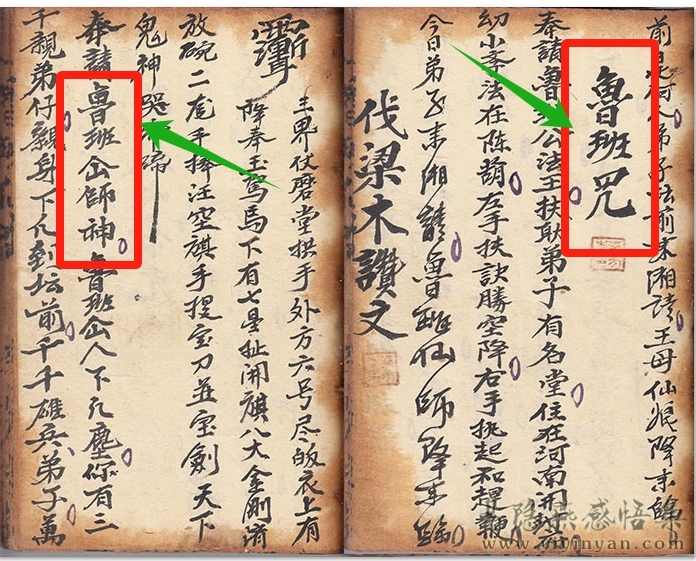 弟子坛前来湘请王母仙娘降来临
魯班咒
奉請魯班公法主扶助弟子有名堂住在河南
幼小孝法在陈葫左手扶訣勝空降右手挑起和趕鞭
今日弟子来湘請魯班仙師降来臨
伐梁木讚文
王界仗磨堂拱手外方六号尽皈衣上有
降奉玉駕馬下有七星扯開旗八大金剛
放碗二
手提宝刀並宝劍天下
鬼神
奉請魯班仙師神魯班仙人下凡塵你有三
千親弟仔親身下凡到坛前千千雄兵弟子萬
隐
感悟集
www.yinyan.com